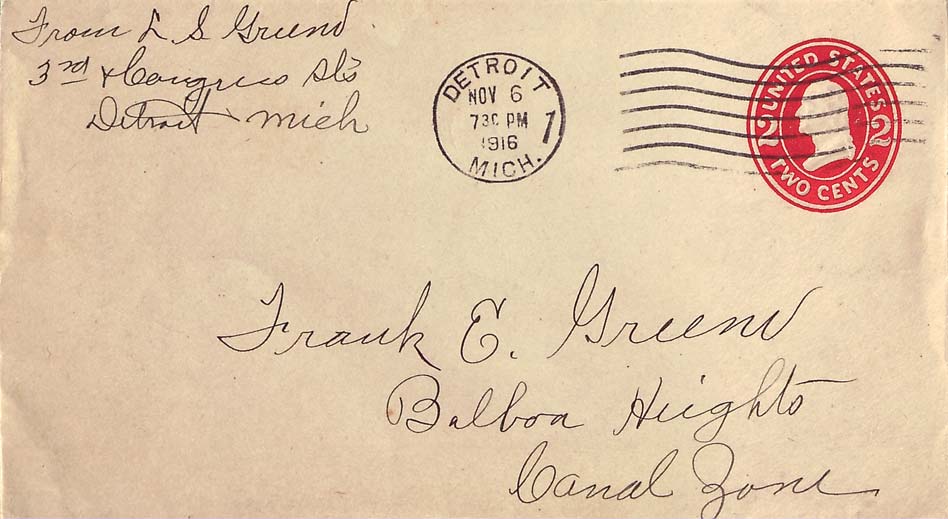 From L S Greene
3rd & Congress Sts
Detroit Mich
DETROIT
NOV 6
730 PM
1916
MICH.
1
UNITED STATES
2 2
TWO CENTS
Frank E. Greene
Balboa Heights
Canal Zone